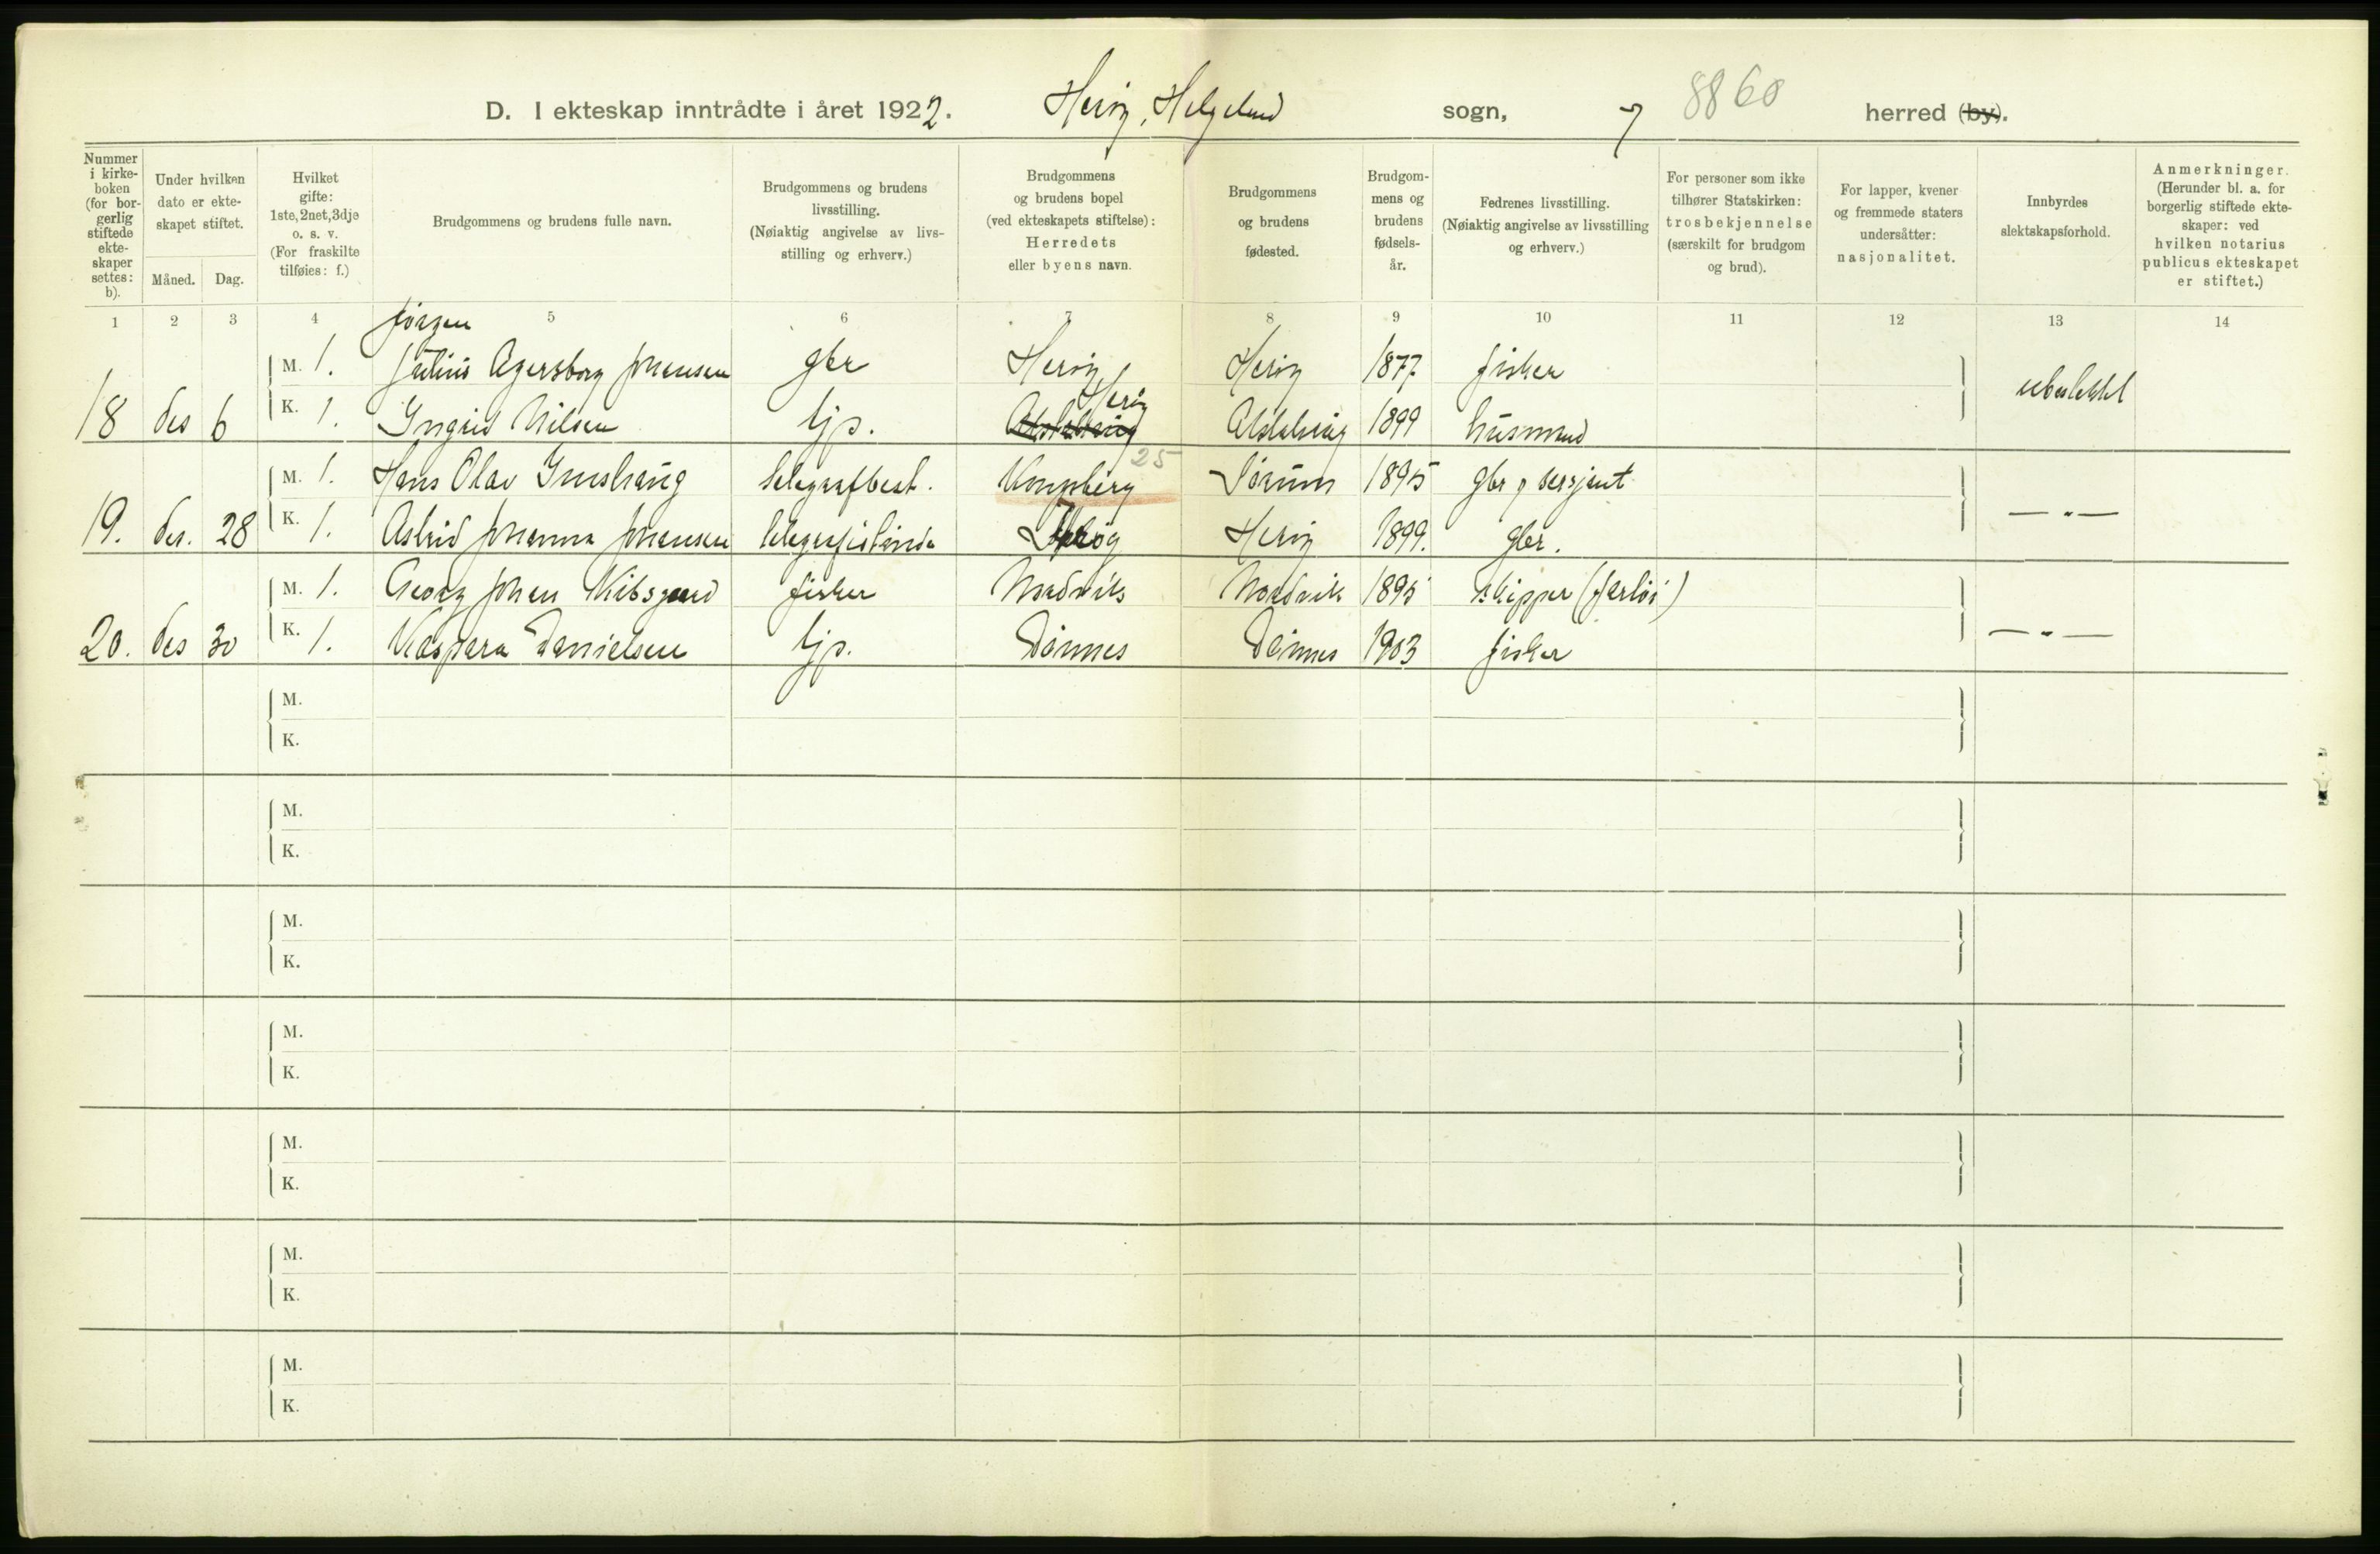 D. I ekteskap inntrådte i året 1922. Herøy, Helgeland sogn, 8860 herred (by).
Nummer i kirke-boken (for bor-gerlig stiftede ekte-skaper settes: b).
Under hvilken dato er ekte-skapet stiftet.
Måned. Dag.
Hvilket gifte: 1ste, 2net, 3dje o. s. v. (For fraskilte tilføies: f.)
Brudgommens og brudens fulle navn.
Brudgommens og brudens livsstilling. (Nøiaktig angivelse av livs-stilling og erhverv.)
Brudgommens og brudens bopel (ved ekteskapets stiftelse): Herredets eller byens navn.
Brudgommens og brudens fødested.
Brudgom-mens og brudens fødsels-år.
Fedrenes livsstilling. (Nøiaktig angivelse av livsstilling og erhverv.)
For personer som ikke tilhører Statskirken: trosbekjennelse (særskilt for brudgom og brud).
For lapper, kvener og fremmede staters undersåtter: nasjonalitet.
Innbyrdes slektskapsforhold.
Anmerkninger. (Herunder bl. a. for borgerlig stiftede ekte-skaper: ved hvilken notarius publicus ekteskapet er stiftet.)
1 2 3 4 5 6 7 8 9 10 11 12 13 14
Jørgen
M. 1. Julius Agersborg Johansen gbr Herøy Herøy 1877 fisker
Herøy
18 des 6 K. 1. Ingrid Nilsen tjp. Alstahaug Alstahaug 1899 husmand ubeslektet
25
M. 1. Hans Olav Imshaug telegrafbest. Kongsberg Sørum 1895 gbr og sersjant
19. des. 28 K. 1. Astrid Johanna Johansen telegrafistinde Herøy Herøy 1899. gbr. — " —
M. 1. Georg Johan Nibsgaard fisker Nordvik Nordvik 1895 skipper (forlöi)
20. des 30 K. 1. Kaspara Danielsen tjp. Dønnes Dønnes 1903 fisker — " —
M.
K.
M.
K.
M.
K.
M.
K.
M.
K.
M.
K.
M.
K.